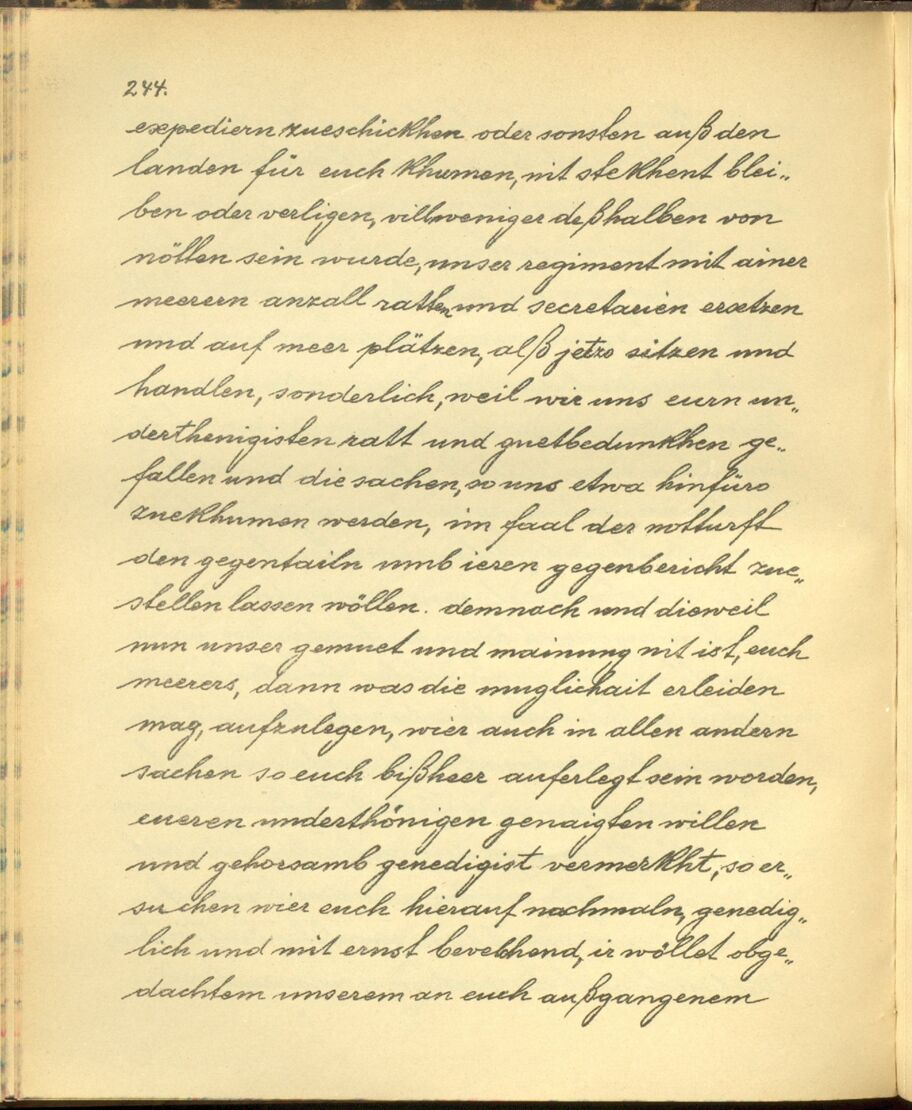 244.
expediern zueschickhen oder sonsten auß den
landen für euch khumen, nit stekhent blei„
ben oder verligen, villweniger deßhalben von
nötten sein wurde, unser regiment mit ainer
meerern anzall ratten und secretarien ersetzen
und auf meer plätzen, alß jetzo sitzen und
handlen, sonderlich, weil wir uns eurn un„
derthenigisten ratt und guetbedunkhen ge„
fallen und die sachen, so uns etwa hinfüro
zuekhumen werden, im faal der notturft
den gegentailn umb ieren gegenbericht zue„
stellen lassen wöllen. demnach und dieweil
nun unser gemuet und mainung nit ist, euch
meerers, dann was die muglichait erleiden
mag, aufzulegen, wier auch in allen andern
sachen so euch bißheer auferlegt sein worden,
eueren underthönigen genaigten willen
und gehorsamb genedigist vermerkht, so er„
suchen wier euch hierauf nachmaln, genedig„
lich und mit ernst bevelchend, ir wöllet obge„
dachtem unserem an euch außgangenem